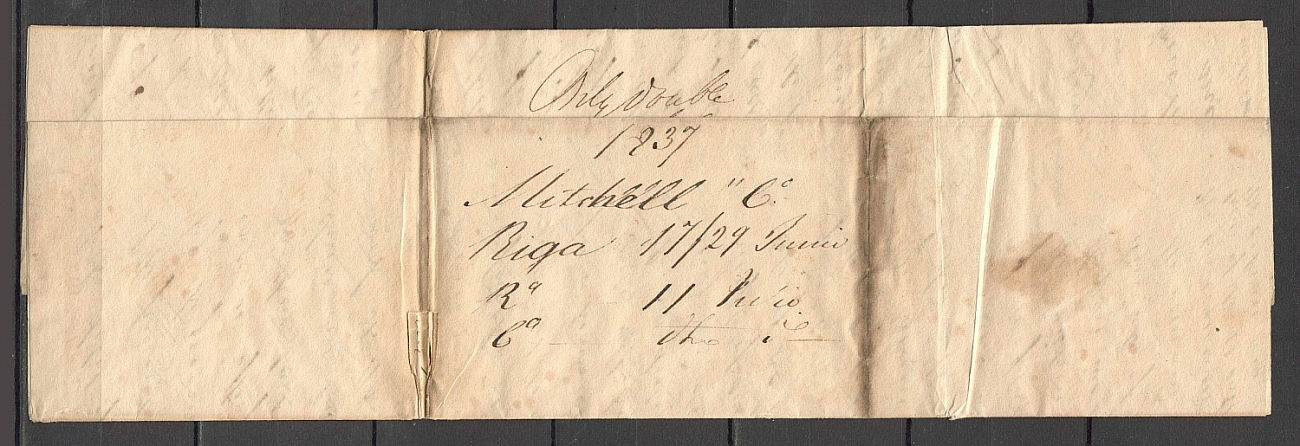 Only double
1837
Mitchell " Cº
Riga 17/29 Junio
Rª 11 Julio
Cª